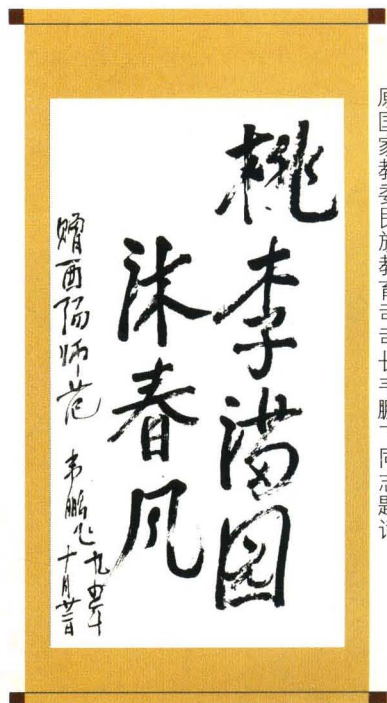 原国家教委民族教育司司长韦鹏飞同志题词
桃李满园
沐春风
赠酉阳师范 韦鹏飞 九五年
十月